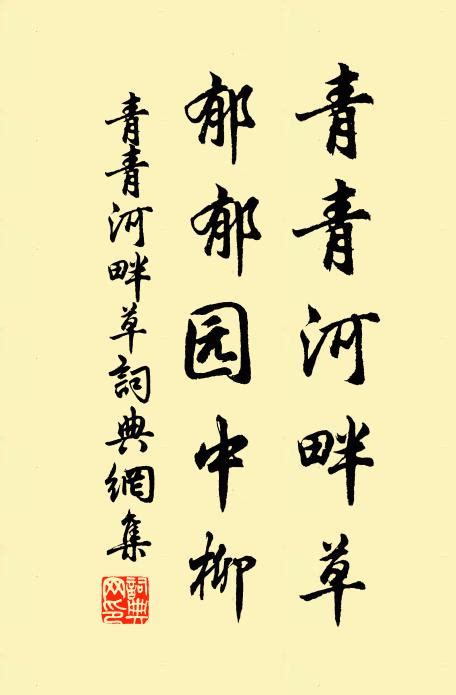 青青河畔草
郁郁园中柳
青青河畔草詞典網集
詞典網印